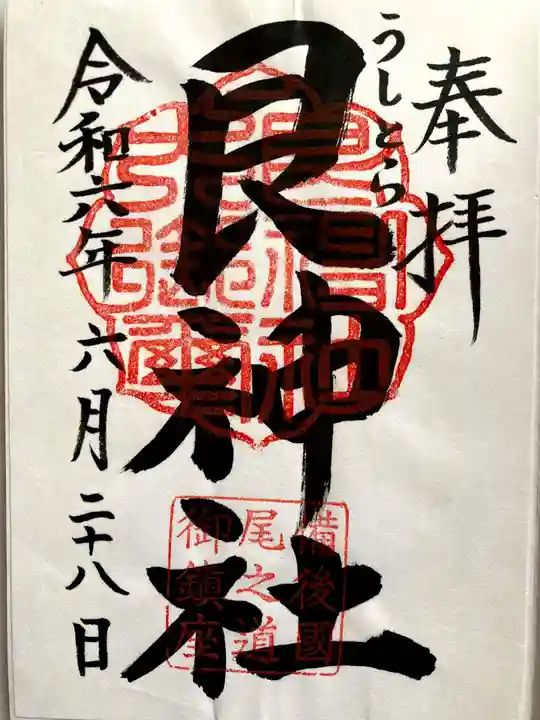 奉拝
うしとら
艮神社
備後國
尾之道
御鎮座
令和六年 六月二十八日